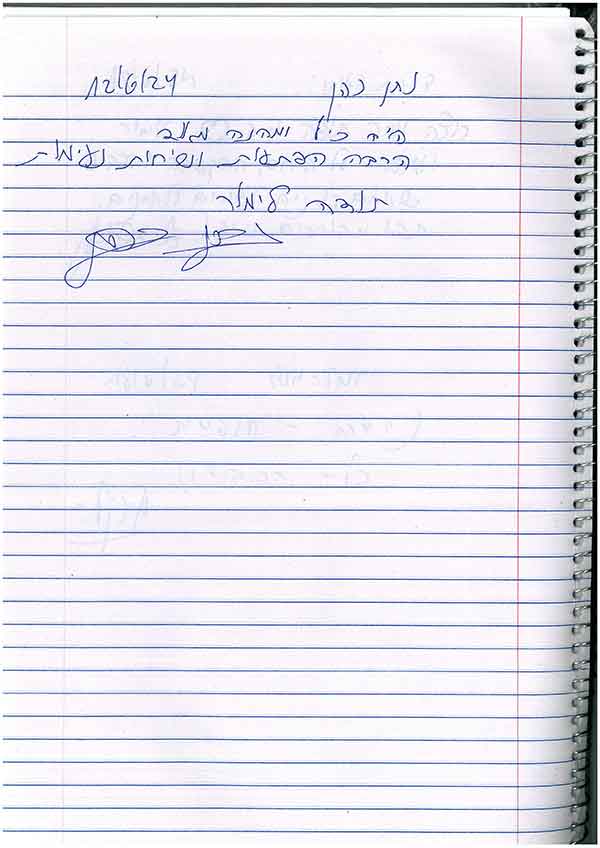 נתן כהן 12/6/24
היה כיף ומהנה מאוד
הרבה הפתעות ונשיחות נעימות
תודה לימור
נתן כהן